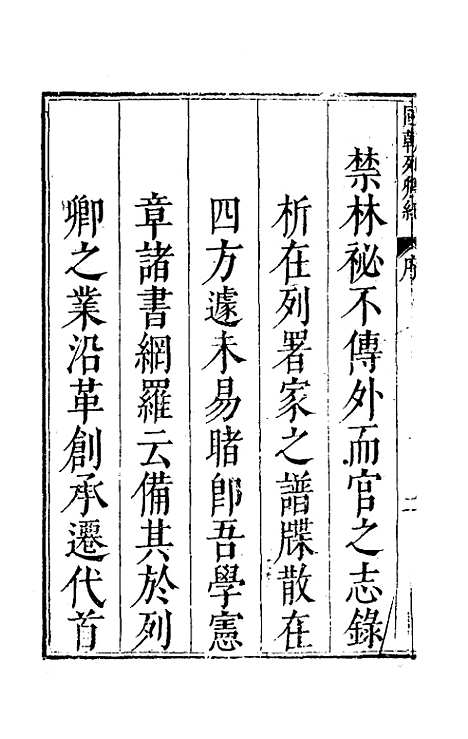 國朝列卿紀 序
禁林祕不傳外而官之志錄
析在列署家之譜牒散在
四方遽未易睹卽吾學憲
章諸書網羅云備其於列
卿之業沿革創承遷代首